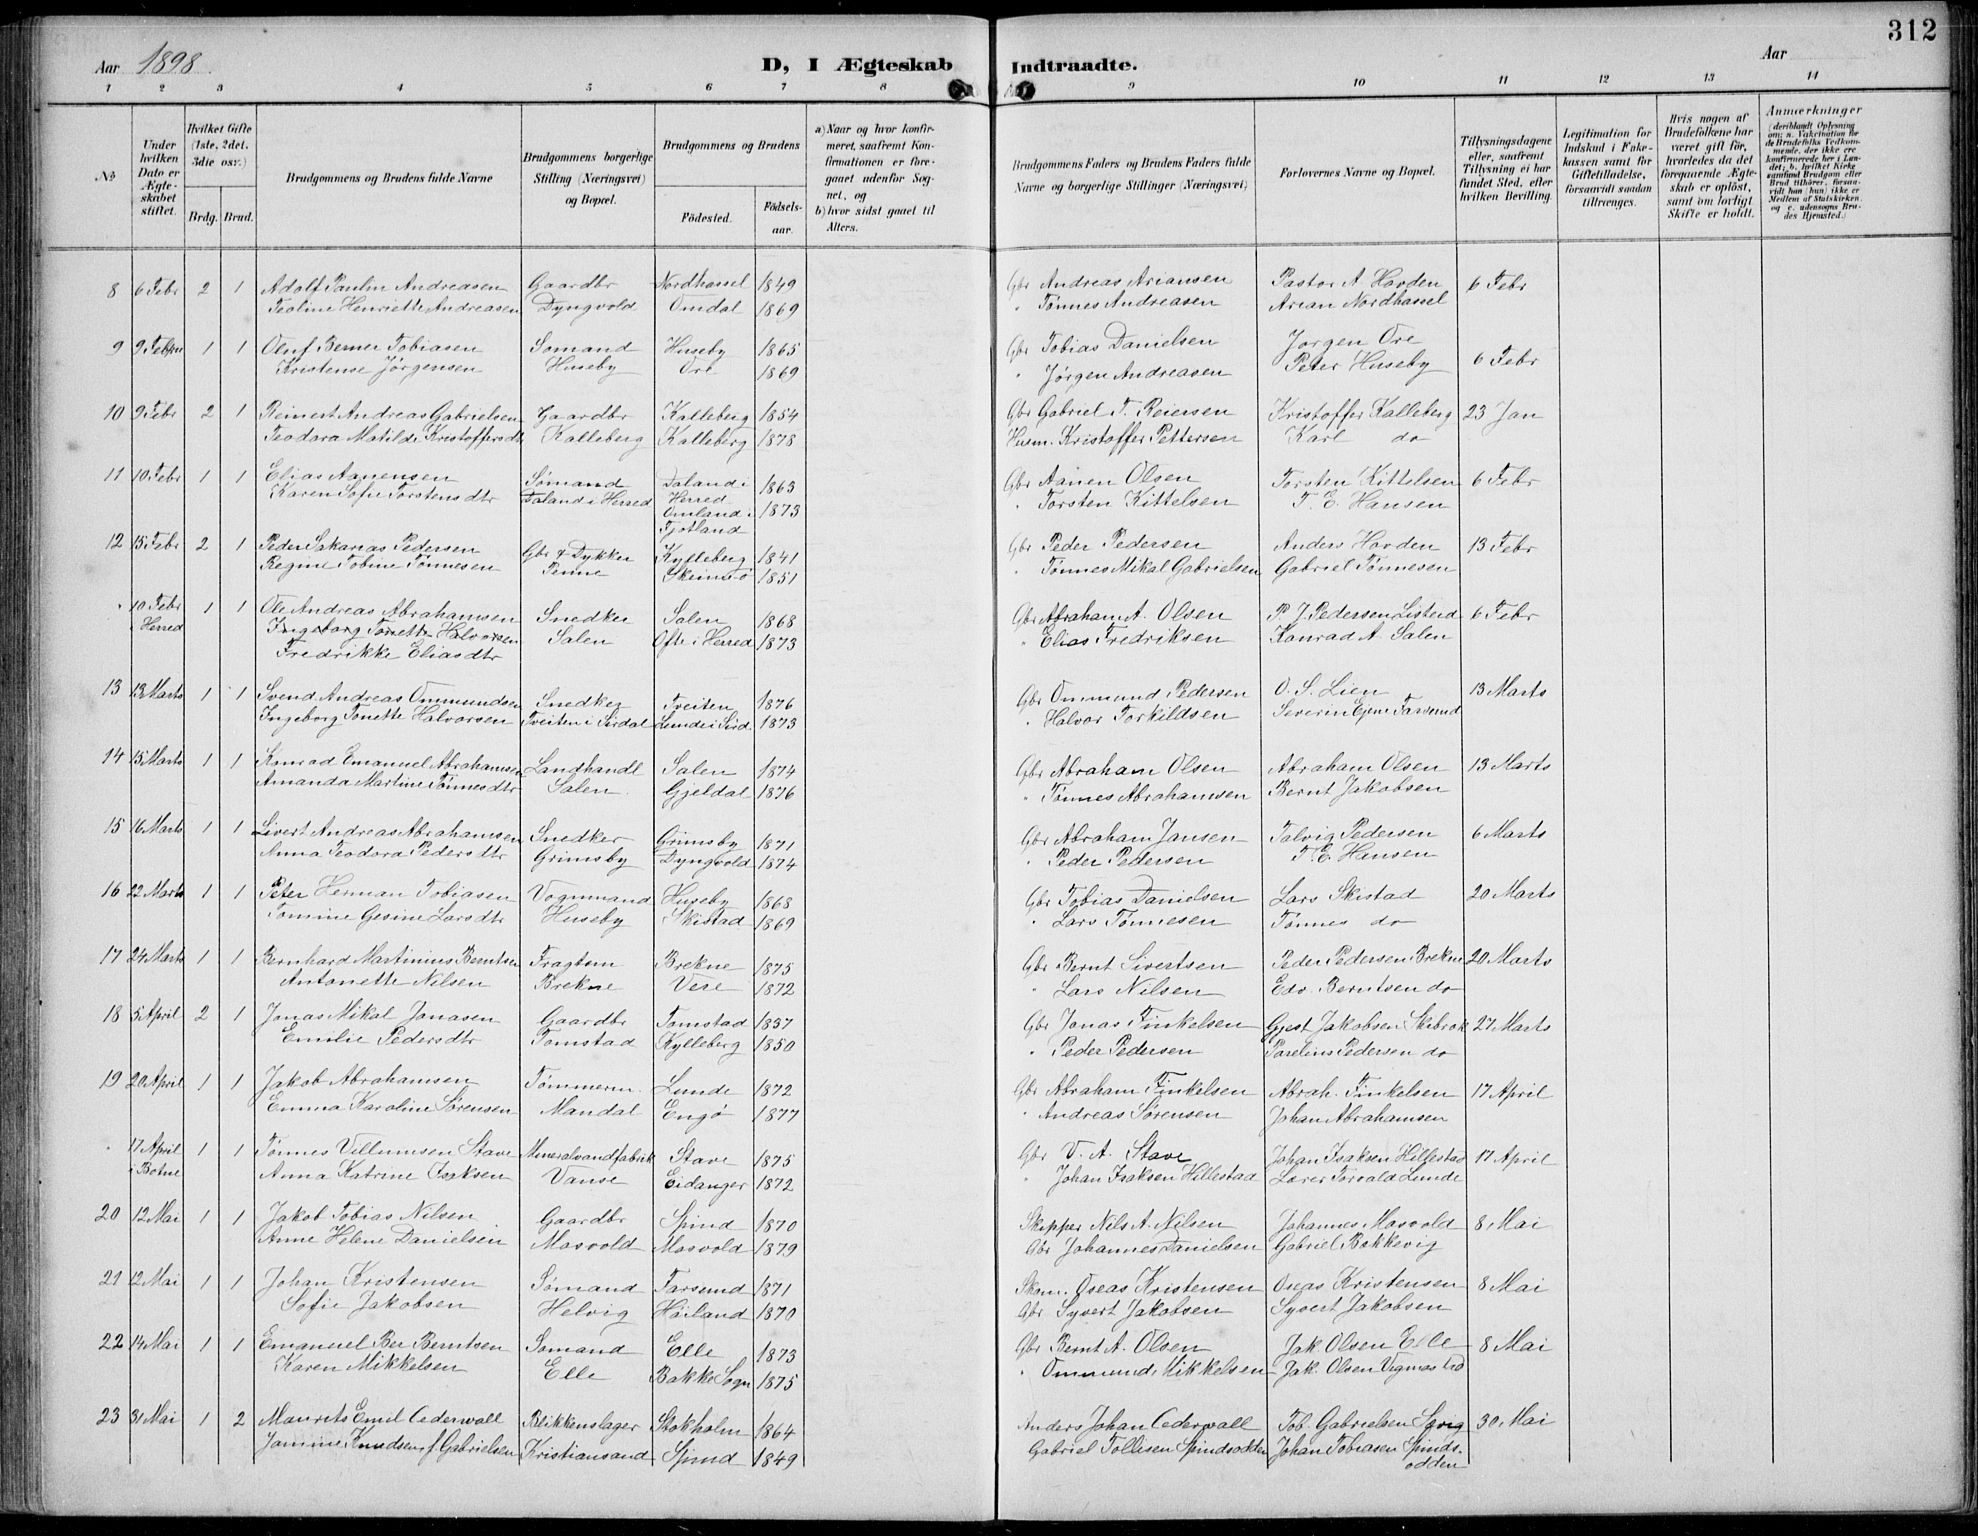 312
Aar 1898.
D, I Ægteskab Indtraadte.
Aar
1 2 3 4 5 6 7 8 9 10 11 12 13 14
№
Under hvilken Dato er Ægteskabet stiftet.
Hvilket Gifte (1ste, 2det, 3die osv.)
Brdg. Brud.
Brudgommens og Brudens fulde Navne
Brudgommens borgerlige Stilling (Næringsvei) og Bopæl.
Brudgommens og Brudens
Födested. Födsels-aar.
a) Naar og hvor konfirmeret, saafremt Konfirmationen er foregaaet udenfor Sognet, og
b) hvor sidst gaaet til Alters.
Brudgommens Faders og Brudens Faders fulde Navne og borgerlige Stillinger (Næringsvei)
Forlovernes Navne og Bopæl.
Tillysningsdagene eller, saafremt Tillysning ei har fundet Sted, efter hvilken Bevilling.
Legitimation for Indskud i Enkekassen samt for Giftetilladelse, forsaavidt saadan tiltrænges.
Hvis nogen af Brudefolkene har været gift för, hvorledes da det foregaaende Ægteskab er oplöst, samt om lovligt Skifte er holdt.
Anmærkninger
(deriblandt Oplysning om: a. Vakcination for de Brudefolks Vedkommende, der ikke ere konfirmerede her i Landet; b. hvilket Kirkesamfund Brudgom eller Brud tilhörer, forsavidt han (hun) ikke er Medlem af Statskirken, og c. udensogns Brudes Hjemsted.)
8 6 Febr 2 1 Adolf Paulin Andreasen Gaardbr Nordhassel 1849 Gbr Andreas Ariansen Pastor A. Hovden 6 Febr
Teoline Henriette Andreasen Dyngvold Omdal 1869 " Tønnes Andreasen Arian Nordhassel
9 9 Febru 1 1 Oluf Berner Tobiasen Sømand Huseby 1865 Gbr Tobias Danielsen Jørgen Ore 6 Febr
Kristense Jørgensen Huseby Ore 1869 " Jørgen Andreasen Peter Huseby
10 9 Febr 2 1 Reinert Andreas Gabrielsen Gaardbr Kalleberg 1854 Gbr Gabriel T. Reiersen Kristoffer Kalleberg 23 Jan
Teodora Matilde Kristoffersdtr Kalleberg Kalleberg 1878 Husm. Kristoffer Pettersen Karl do
11 10 Febr 1 1 Elias Aanensen Sømand Daland i Herred 1863 Gbr Aanen Olsen Torsten Kittelsen 6 Febr
Karen Sofie Torstensdtr Daland i Herred Omland i Fjotland 1873 " Torsten Kittelsen T. E. Hansen
12 15 Febr 2 1 Peder Sakarias Pedersen Gbr & Dykker Kylleberg 1841 Gbr Peder Pedersen Anders Hovden 13 Febr
Regine Tobine Tønnesen Penne 1851 " Tønnes Mikal Gabrielsen Gabriel Tønnesen
" 10 Febr i Herred 1 1 Ole Andreas Abrahamsen Snedker Salen 1868 Gbr Abraham A. Olsen P. J. Pedersen Listeid 6 Febr
Ingeborg Tonette Halvorsen
Fredrikke Eliasdtr Salen Ofte i Herred 1873 " Elias Fredriksen Konrad A. Salen
13 13 Marts 1 1 Svend Andreas Ommundsen Snedker Tveiten 1876 Gbr Ommund Pedersen O. S. Lien 13 Marts
Ingeborg Tonette Halvorsen Tveiten i Sirdal Lunde i Sird. 1873 " Halvor Torkildsen Severin Farsund
14 15 Marts 1 1 Konrad Emanuel Abrahamsen Landhandl Salen 1874 Gbr Abraham Olsen Abraham Olsen 13 Marts
Amanda Martine Tønnesdtr Salen Gjeldal 1876 " Tønnes Abrahamsen Bernt Jakobsen
15 16 Marts 1 1 Sivert Andreas Abrahamsen Snedker Grimsby 1871 Gbr Abraham Jansen Talvig Pedersen 6 Marts
Anna Teodora Pedersdtr Grimsby Dyngvold 1874 " Peder Pedersen T. E. Hansen
16 22 Marts 1 1 Peter Herman Tobiasen Vognmand Huseby 1868 Gbr Tobias Danielsen Lars Skistad 20 Marts
Tomine Gesine Larsdtr Huseby Skistad 1869 " Lars Tønnesen Tønnes do
17 24 Marts 1 1 Bernhard Martinius Berntsen Fragtem Brekne 1875 Gbr Bernt Sivertsen Peder Pedersen Brekne 20 Marts
Antonette Nilsen Brekne Vere 1872 " Lars Nilsen Edv. Berntsen do
18 5 April 2 1 Jonas Mikal Jonasen Gaardbr Tomstad 1837 Gbr Jonas Finkelsen Gjest Jakobsen Skibrok 27 Marts
Emilie Pedersdtr Tomstad Kylleberg 1850 " Peder Pedersen Parelius Pedersen do
19 20 April 1 1 Jakob Abrahamsen Tømmerm. Lunde 1872 Gbr Abraham Finkelsen Abrah. Finkelsen 17 April
Emma Karoline Sørensen Mandal Engø 1877 " Andreas Sørensen Johan Abrahamsen
" 17 April i Botne 1 1 Tønnes Villumsen Stave Mineralvandfabrik Stave 1875 Gbr V. A. Stave Johan Isaksen Hillestad 17 April
Anna Katrine Isaksen Vanse Eidanger 1872 " Johan Isaksen Hillestad Lærer Torvald Lunde
20 12 Mai 1 1 Jakob Tobias Nilsen Gaardbr Spind 1870 Skipper Nils A. Nilsen Johannes Mosvold 8 Mai
Anne Helene Danielsen Mosvold Mosvold 1879 Gbr Johannes Danielsen Gabriel Bakkevig
21 12 Mai 1 1 Johan Kristensen Sømand Farsund 1871 Skom. Oseas Kristensen Oseas Kristensen 8 Mai
Sofie Jakobsen Helvig Høiland 1870 Gbr Syvert Jakobsen Syvert Jakobsen
22 14 Mai 1 1 Emanuel Ber Berntsen Sømand Elle 1873 Gbr Bernt A. Olsen Jak. Olsen Elle 8 Mai
Karen Mikkelsen Elle Bakke Sogn 1875 " Ommund Mikkelsen Jak. Olsen Vigmostad
23 31 Mai 1 2 Maurits Emil Cederwall Blikkenslager Stokholm 1864 Anders Johan Cederwall Tob. Gabrielsen 30 Mai
Jomine Knudsen f. Gabrielsen Kristiansand Spind 1849 Gabriel Tollisen Spindsodden Johan Tobiasen Spinds-
odden